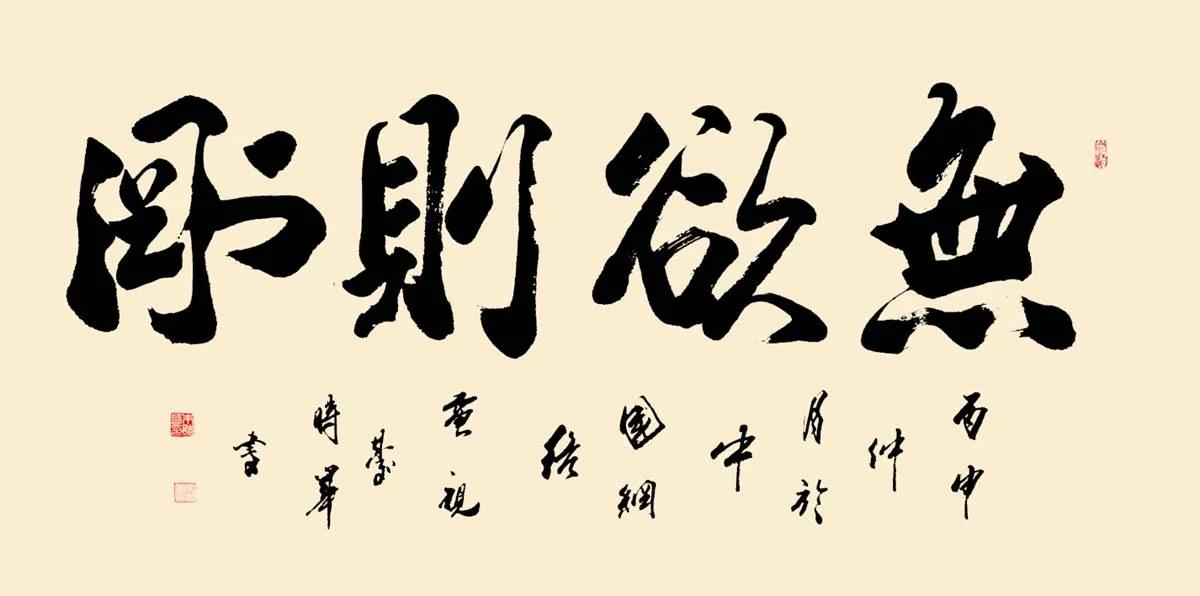 無欲則剛
丙申
仲
月於
中
國網
絡
電視
臺
時華
書